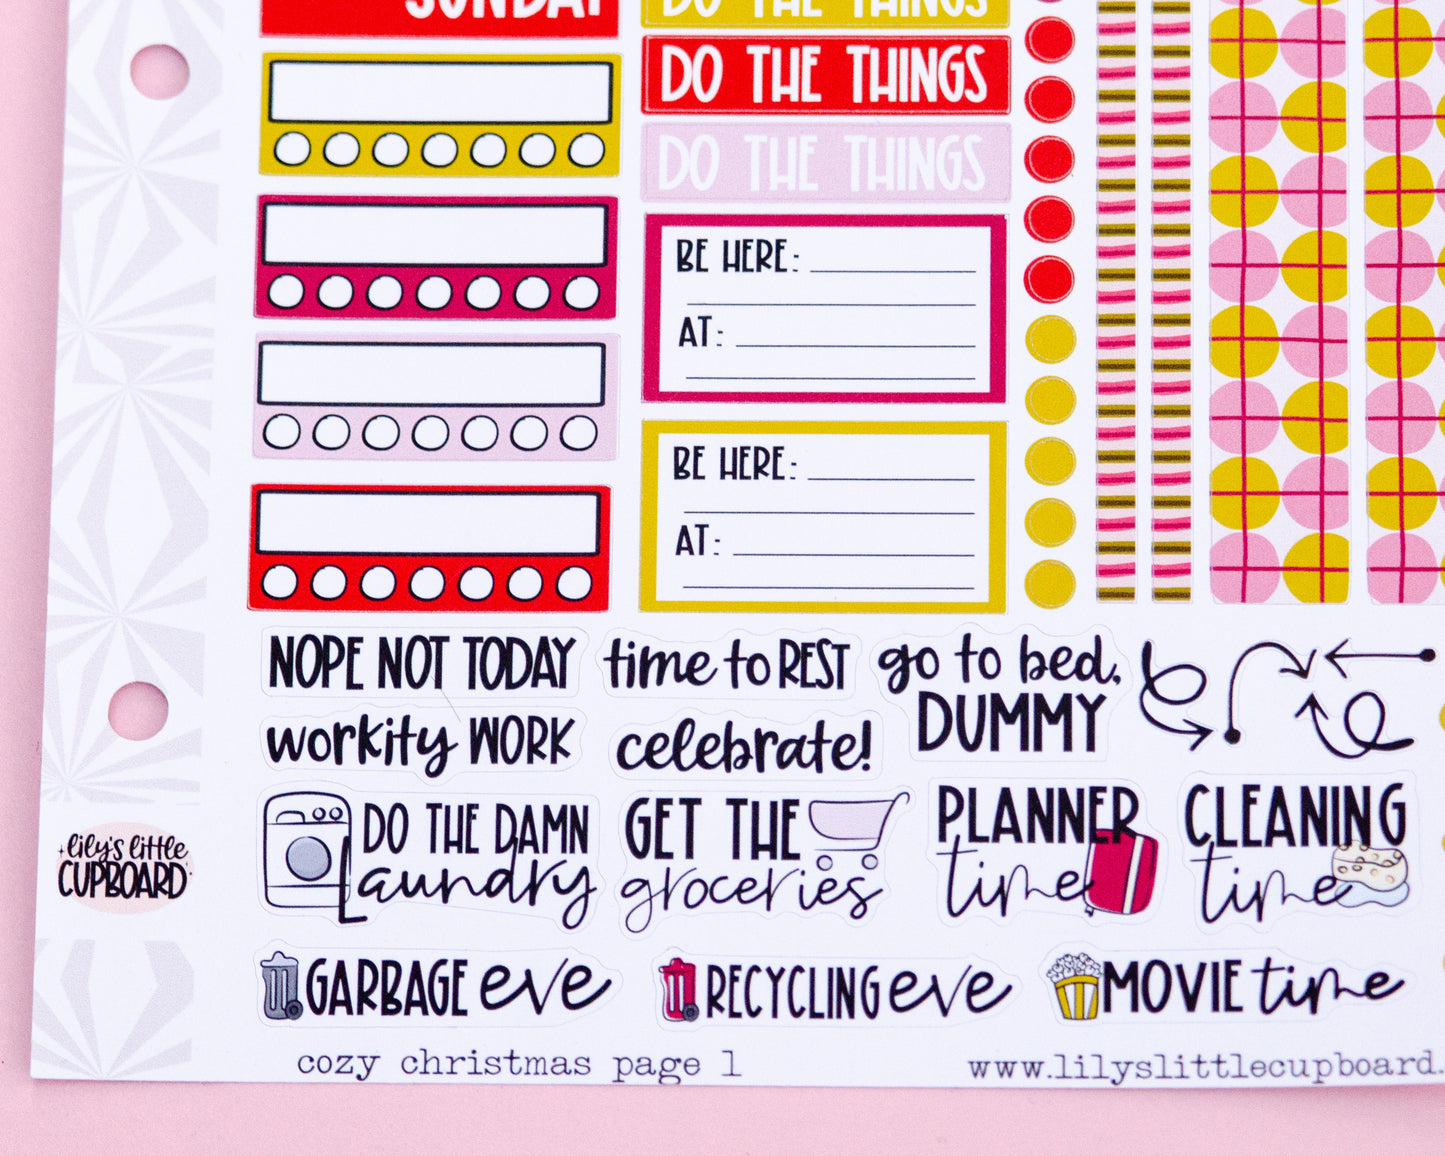 SUNDAY
DO THE THINGS
DO THE THINGS
DO THE THINGS
BE HERE:
AT:
BE HERE:
AT:
NOPE NOT TODAY
time to REST
go to bed,
DUMMY
workity WORK
celebrate!
DO THE DAMN
laundry
GET THE
groceries
PLANNER
time
CLEANING
time
lily's little
CUPBOARD
GARBAGE eve
RECYCLING eve
MOVIE time
cozy christmas page 1
www.lilyslittlecupboard.